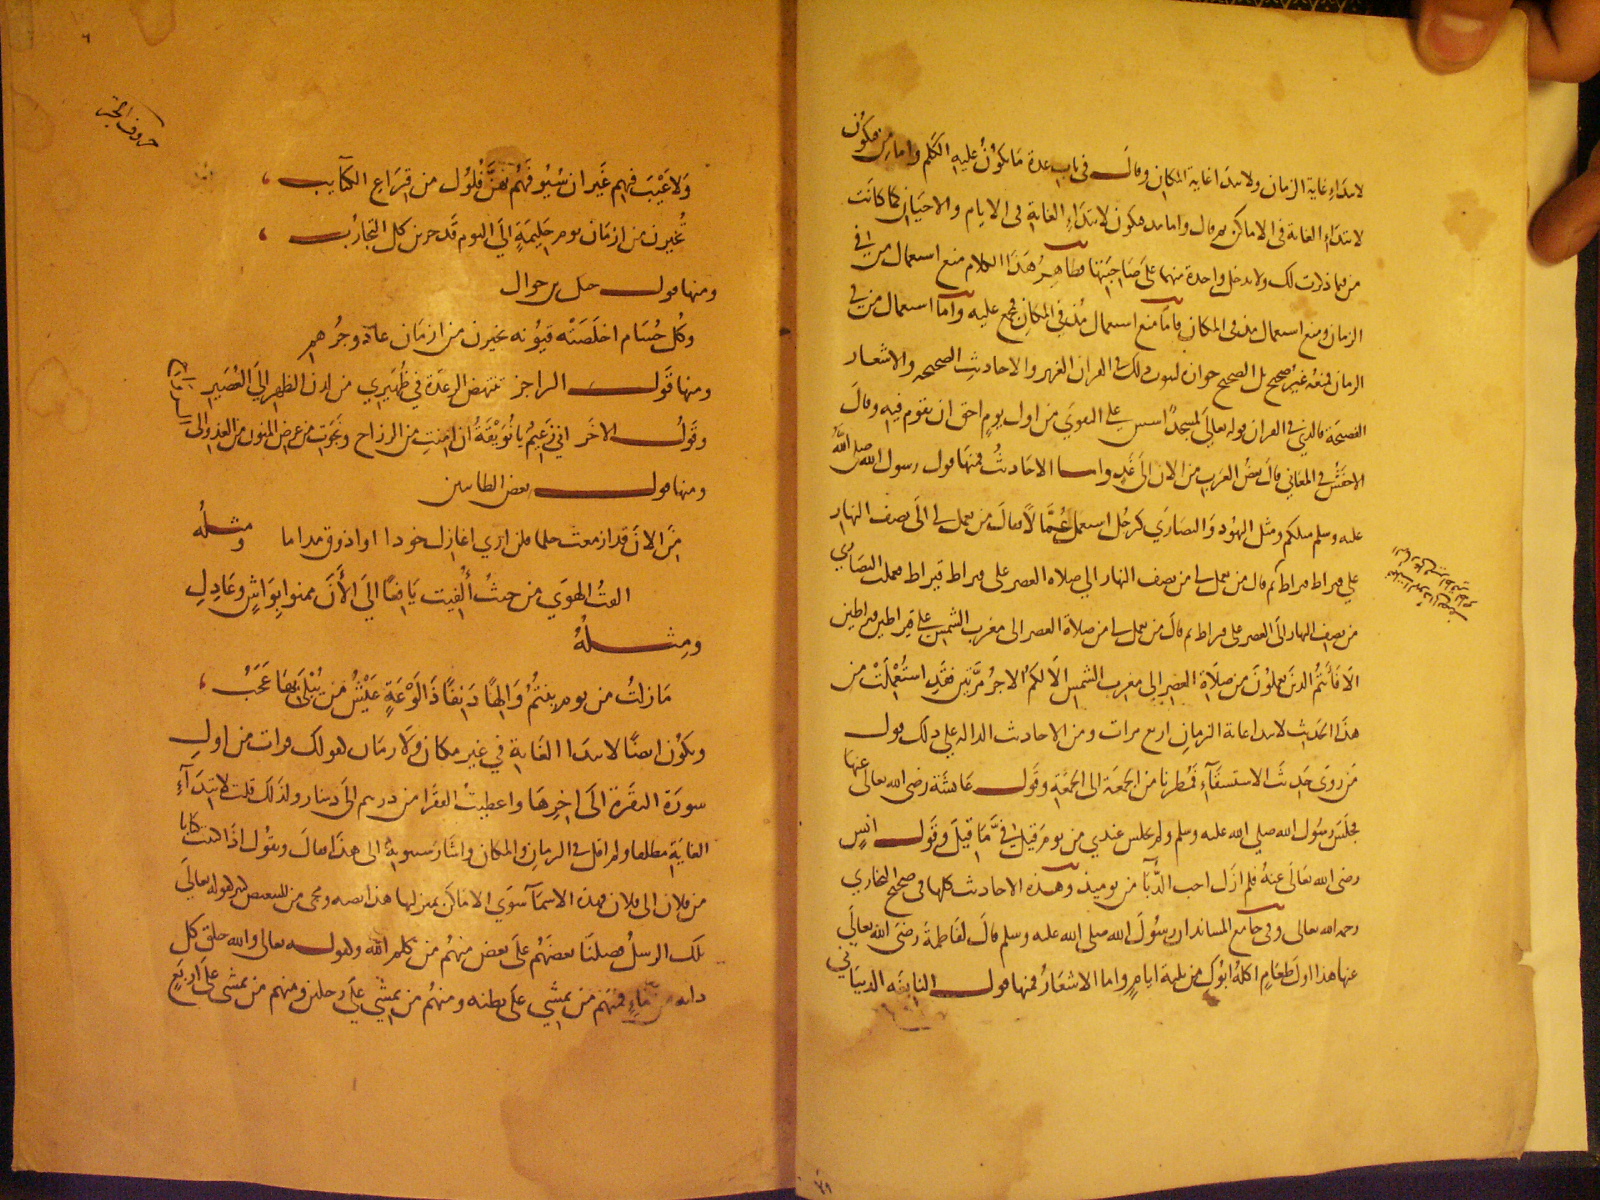 لابتداء غاية الزمان ولابتداء غاية المكان وقال في باب عدة ما يكون عليه الكلم واما من فتكون
لابتداء الغاية في الاماكن ثم قال واما مذ فتكون لابتداء الغاية في الايام والاحيان كما كانت
من فيما ذكرت لك ولا تدخل واحدة منهما على صاحبتها فظاهر هذا الكلام منع استعمال من في
الزمان ومنع استعمال مذ في المكان فاما منع استعمال مذ في المكان فمجمع عليه واما استعمال من في
الزمان فمنعه غير صحيح بل الصحيح جوازه لثبوت ذلك في القران العزيز والاحاديث الصحيحة والاشعار
الفصيحة فالذي في القران قوله تعالى لمسجد اسس على التقوى من اول يوم احق ان تقوم فيه وقال
الاخفش في المعاني قال بعض العرب من الان الى غد واما الاحاديث فمنها قول رسول الله صلى الله
عليه وسلم مثلكم ومثل اليهود والنصارى كرجل استعمل عمالا فقال من يعمل لي الى نصف النهار
على قيراط قيراط ثم قال من يعمل لي من نصف النهار الى صلاة العصر على قيراط قيراط فعملت النصارى
من نصف النهار الى العصر على قيراط ثم قال من يعمل لي من صلاة العصر الى مغرب الشمس على قيراطين قيراطين
الا فانتم الذين يعملون من صلاة العصر الى مغرب الشمس الا لكم الاجر مرتين فقد استعملت من
هذا الحديث لابتداء غاية الزمان اربع مرات ومن الاحاديث الدالة على ذلك قول
من روى حديث الاستسقاء فمطرنا من الجمعة الى الجمعة وقول عائشة رضي الله تعالى عنها
فجلس رسول الله صلي الله عليه وسلم ولم يجلس عندي من يوم قيل في ما قيل وقول انس
رضي الله تعالى عنه فلم ازل احب الدباء من يومئذ وهذه الاحاديث كلها في صحيح البخاري
رحمه الله تعالى وفي جامع المسانيد ان رسول الله صلى الله عليه وسلم قال لفاطمة رضي الله تعالى
عنها هذا اول طعام اكله ابوك من ثلثة ايام واما الاشعار فمنها قول النابغة الذبياني
٧٩
٦
حروف الجر
ولا عيب فيهم غير ان سيوفهم بهن فلول من قراع الكتايب
تخيرن من ازمان يوم حليمة الى اليوم قد جربن كل التجارب
ومنها قول جبل بن جوال
وكل حسام اخلصته قيونه تخيرن من ازمان عاد وجرهم
ومنها قول الراجز تنتهض الرعدة في ظهيري من لدن الظهر الى العصير
وقول الاخر اني زعيم يا نويقة ان امنت من الرزاح ونجوت من عرض المنون من الغدو الى
ومنها قول بعض الطائيين
من الان قد ازمعت حلما فلن ارى اغازل خودا او اذوق مداما ومثله
الفت الهوى من حيث الفيت يافعا الى الان ممنوا بواش وعاذل
ومثله
ما زلت من يوم بنتم والها دنفا ذا لوعة عيش من يبلى بها عجب
ويكون ايضا لابتداء الغاية في غير مكان ولا زمان كقولك قرات من اول
سورة البقرة الى اخرها واعطيت الفقرا من درهم الى دينار ولذلك قلت لابتداء
الغاية مطلقا ولم اقل في الزمان والمكان واشار سيبويه الى هذا فقال وتقول اذا كتبت كتابا
من فلان الى فلان فهذه الاسماء سوى الاماكن بمنزلتها هذا نصه ومجى من للتبعيض كقوله تعالى
تلك الرسل فضلنا بعضهم على بعض منهم من كلم الله وكقوله تعالى والله خلق كل
دابة من ماء فمنهم من يمشي على بطنه ومنهم من يمشي على رجلين ومنهم من يمشي على اربع